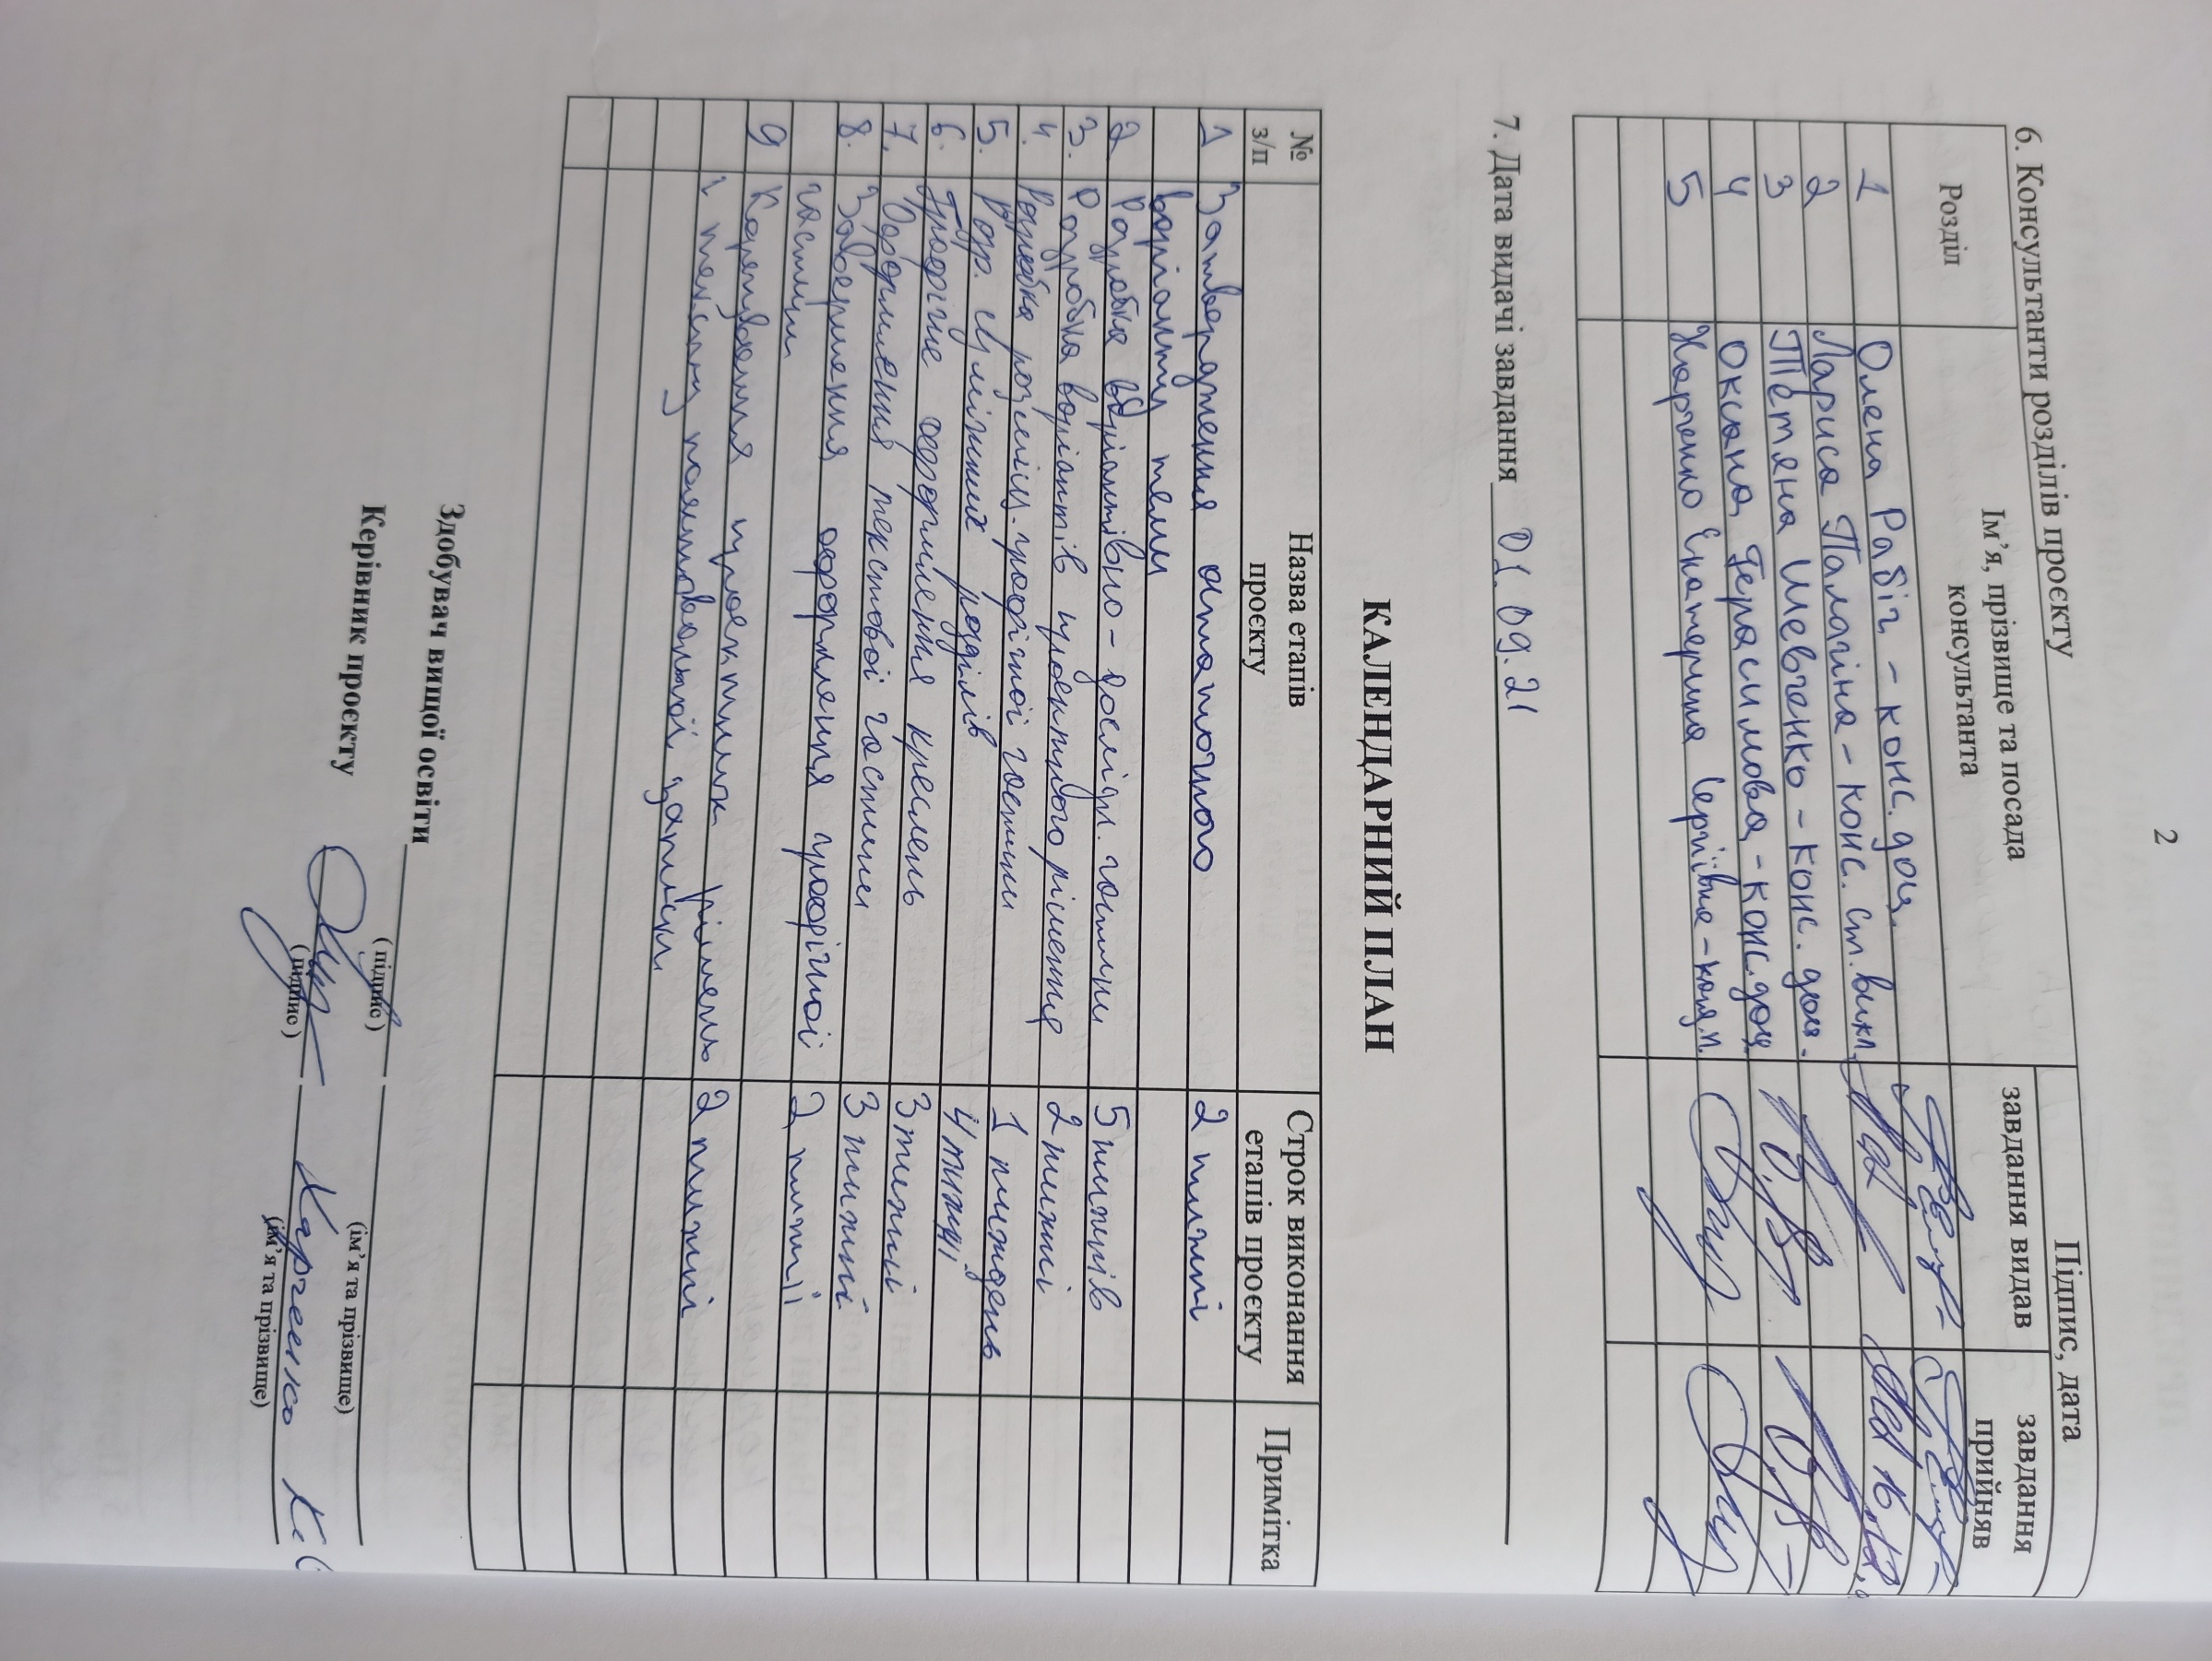 2
6. Консультанти розділів проєкту
Розділ
Ім’я, прізвище та посада консультанта
Підпис, дата
завдання видав
завдання прийняв
1 Олена Рабіч - конс. доц.
2 Лариса Палагіна - конс. ст. викл.
3 Тетяна Шевченко - конс. доц.
4 Оксана Герасимова - конс. доц.
5 Харченко Екатерина Сергіївна
7. Дата видачі завдання 01.09.21
КАЛЕНДАРНИЙ ПЛАН
№ з/п
Назва етапів проєкту
Строк виконання етапів проєкту
Примітка
1 Затвердження остаточного 2 тижні
варіанту теми
2 Розробка варіантівно-дослідн. частини 5 тижнів
3. Розробка варіантів проектного рішення 2 тижні
4. Розробка розділів графічної частини 1 тиждень
5. Розр. суміжних розділів 4 тижні
6. Графічне оформлення креслень 3 тижні
7. Оформлення текстової частини 3 тижні
8. Завершення оформлення графічної 2
частини
9 Корегування проектних рішень 2 тижні
і тексту пояснювальної записки
Здобувач вищої освіти
(підпис) (ім’я та прізвище)
Керівник проєкту Харченко К.С
(підпис) (ім’я та прізвище)